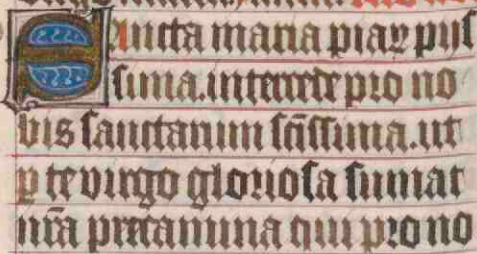 Sancta maria piaꝝ pijſ
ſima.intercede pro no
bis ſanctarum ſc̄iſſima.ut
ꝑ te virgo glorioſa ſumat
nr̄a precamina qui pro no